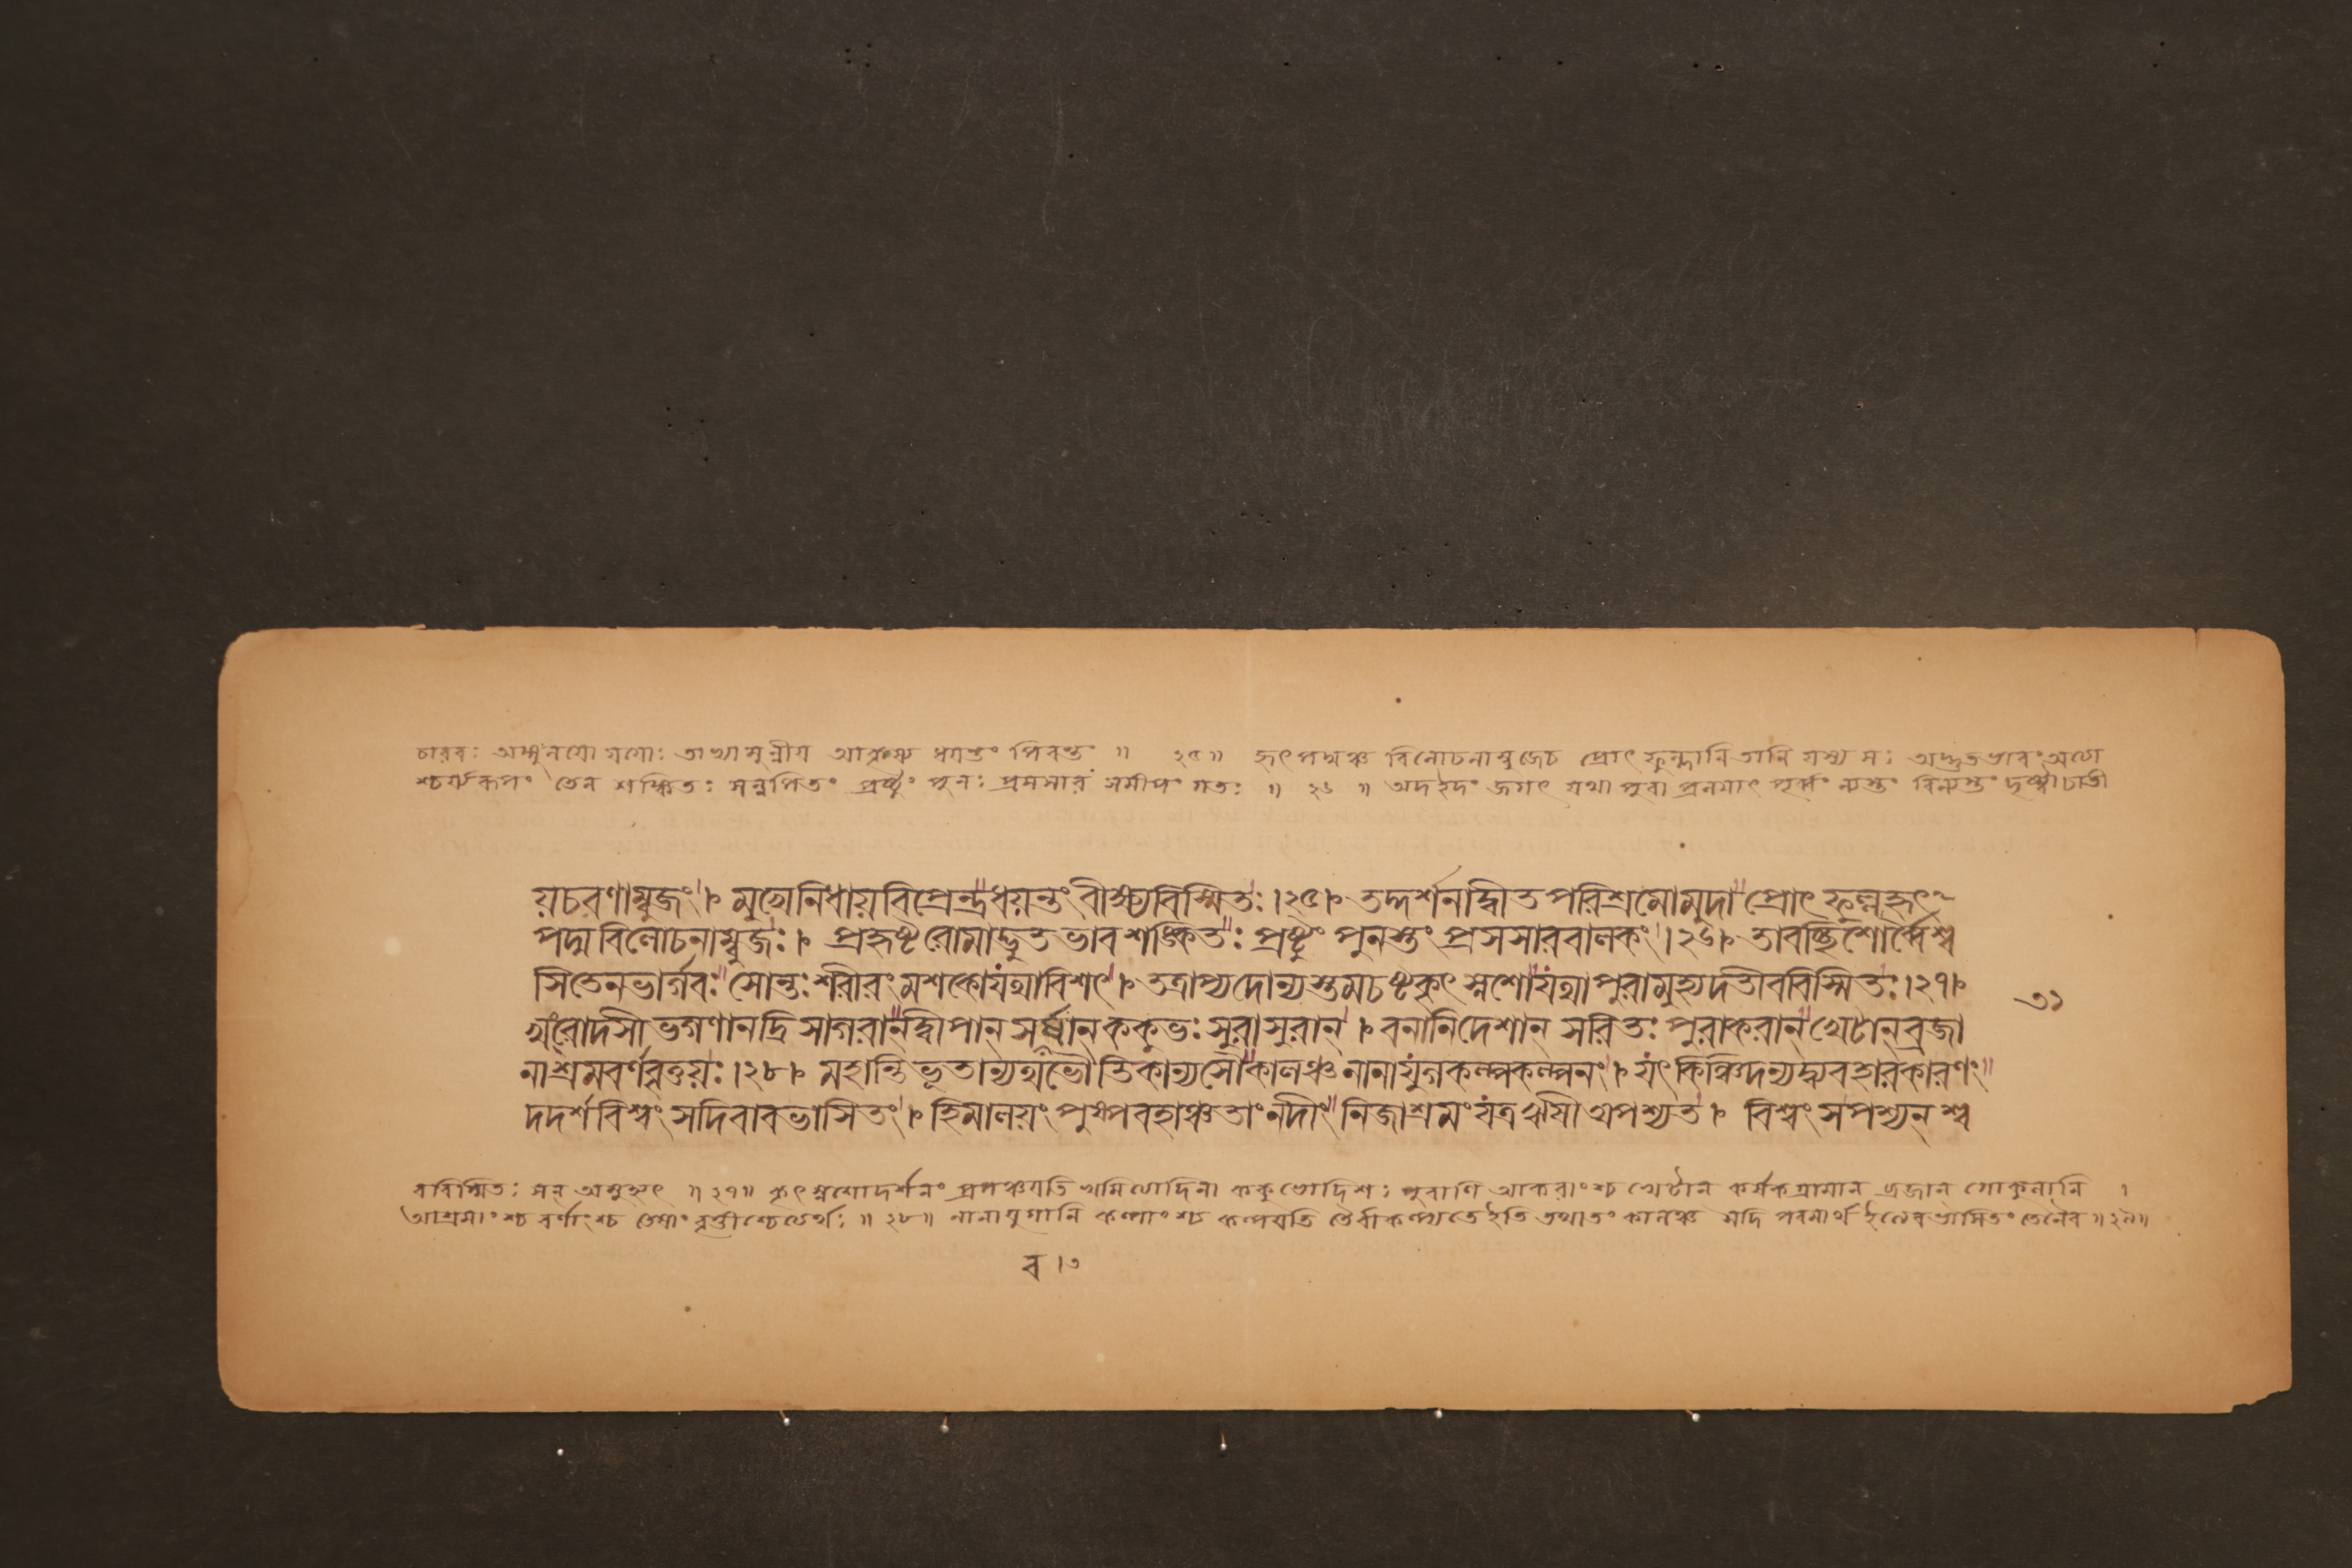 চারবঃ অঙ্গুলয়ো যয়োঃ তাভ্যামুন্নীয় আকৃষ্য ধয়ন্তং পিবন্তং ॥ ২৫॥ হৃৎপদ্মঞ্চ বিলোচনাম্বুজেচ প্রোৎফুল্লানি তানি যস্য সঃ অদ্ভুতভাবং অত্যা
শ্চর্য্যরূপং তেন শঙ্কিতঃ সন্নপিতং প্রষ্টুং পুনঃ প্রসসার সমীপং গতঃ ॥ ২৬ ॥ অদইদং জগৎ যথা পুরা প্রলয়াৎ পূর্ব্বং ন্যস্তং বিন্যস্তং দৃষ্ট্বাচাতী
য়চরণাম্বুজং। মুখেনিধায়বিপ্রেন্দ্রধয়ন্তংবীক্ষ্যবিস্মিতঃ।২৫। তদ্দর্শনাদ্বীতপরিশ্রমোমুদাপ্রোৎফুল্লহৃৎ
পদ্মবিলোচনাম্বুজঃ। প্রহৃষ্টরোমাদ্ভুতভাবশঙ্কিতঃ প্রষ্টুং পুনস্তং প্রসসারবালকং।২৬। তাবচ্ছিশোর্ব্বৈশ্ব
সিতেনভার্গবঃ সোন্তঃশরীরং মশকোযথাবিশৎ। তত্রাপ্যদোন্যস্তমচষ্টকৃৎস্নশোযথাপুরামুহ্যদতীববিস্মিতঃ।২৭।
৩১
খংরোদসী ভগণানদ্রিসাগরান্দ্বীপান্ সবর্ষান্ ককুভঃ সুরাসুরান্। বনানিদেশান্ সরিতঃ পুরাকরান্ খেটান্ব্রজা
নাশ্রমবর্ণবৃত্তয়ঃ।২৮। মহান্তিভূতান্যথভৌতিকান্যসৌকালঞ্চনানাযুগকল্পকল্পনং। যৎকিঞ্চিদন্যদ্ব্যবহারকারণং
দদর্শবিশ্বং সদিবাবভাসিতং। হিমালয়ং পুষ্পবহাঞ্চতাং নদীং নিজাশ্রমং যত্রঋষী অপশ্যত। বিশ্বং সপশ্যন্ শ্ব
ববিস্মিতঃ সন্ অমুহ্যৎ ॥ ২৭॥ কৃৎস্নশোদর্শনং প্রপঞ্চয়তি খমিত্যাদিনা ককুভোদিশঃ পুরাণি আকরাংশ্চ খেটান্ কর্ষকগ্রামান্ ব্রজান্ গোকুলানি ।
আশ্রমাংশ্চ বর্ণাংশ্চ তেষাং বৃত্তীশ্চেত্যর্থঃ ॥ ২৮॥ নানাযুগানি কল্পাংশ্চ কল্পয়তি তৈর্বাকল্প্যতেইতি তথাতং কালঞ্চ সদি পরমার্থইবেবভাসিতং তেনৈব ॥২৯॥
ব ।৩